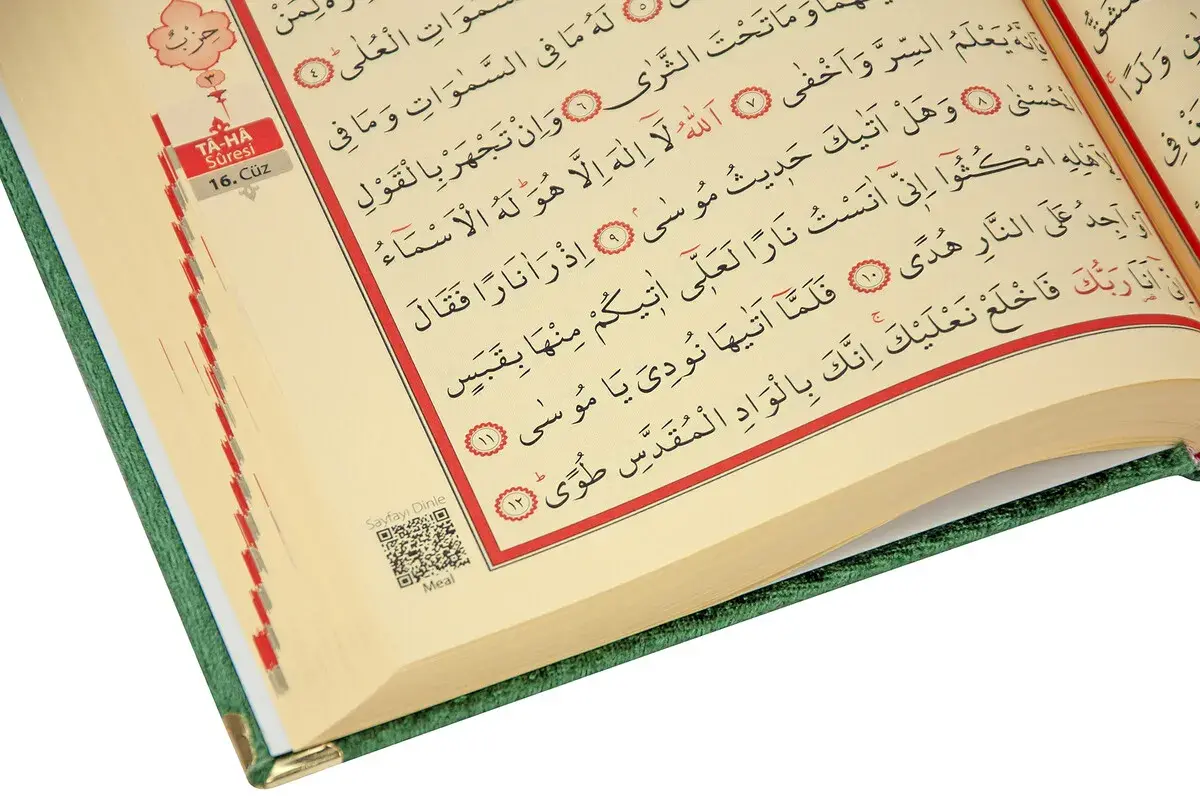 حِزْبُ
٣
TÂ-HÂ
Sûresi
16. Cüz
لِمَنْ
السَّمٰوَاتِ الْعُلٰىۜ ٤
٥ لَهُ مَا فِي السَّمٰوَاتِ وَمَا فِي
وَمَا تَحْتَ الثَّرٰى ٦ وَاِنْ تَجْهَرْ بِالْقَوْلِ
فَاِنَّهُ يَعْلَمُ السِّرَّ وَاَخْفٰى ٧ اَللّٰهُ لَٓا اِلٰهَ اِلَّا هُوَۜ لَهُ الْاَسْمَٓاءُ
الْحُسْنٰى ٨ وَهَلْ اَتٰيكَ حَد۪يثُ مُوسٰىۢ ٩ اِذْ رَاٰ نَارًا فَقَالَ
لِاَهْلِهِ امْكُثُٓوا اِنّ۪ٓي اٰنَسْتُ نَارًا لَعَلّ۪ٓي اٰت۪يكُمْ مِنْهَا بِقَبَسٍ
اَوْ اَجِدُ عَلَى النَّارِ هُدًى ١٠ فَلَمَّٓا اَتٰيهَا نُودِيَ يَا مُوسٰى ١١
اِنّ۪ٓي اَنَا۬ رَبُّكَ فَاخْلَعْ نَعْلَيْكَۚ اِنَّكَ بِالْوَادِ الْمُقَدَّسِ طُوًىۜ ١٢
Sayfayı Dinle
Meal
وَلَدًا